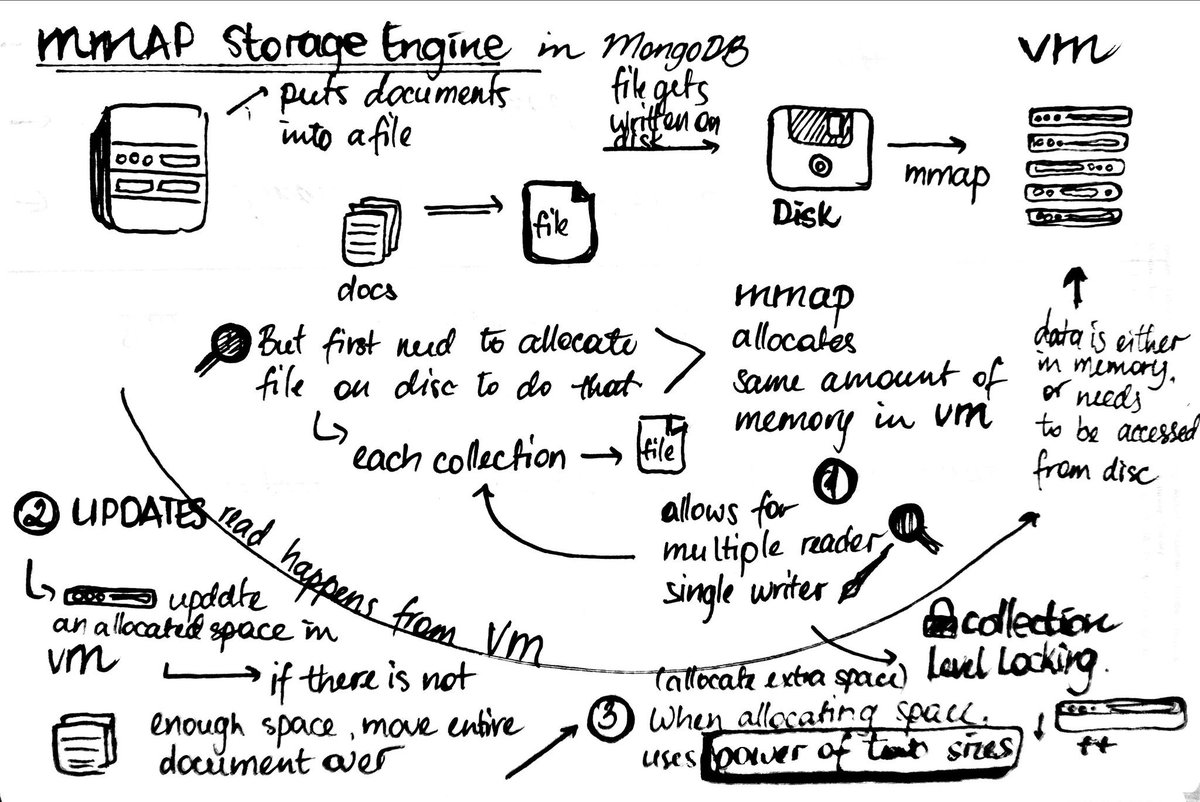 MMAP Storage Engine in MongoDB
puts documents
into a file
file gets
written on
disk
mmap
Disk
VM
docs
file
But first need to allocate
file on disc to do that
each collection
file
mmap
allocates
same amount of
memory in VM
data is either
in memory.
or needs
to be accessed
from disc
1
allows for
multiple reader
single writer
collection
Level Locking.
read happens from VM
2 UPDATES
update
an allocated space in
VM
if there is not
enough space, move entire
document over
(allocate extra space)
3 When allocating space.
uses power of sizes
++